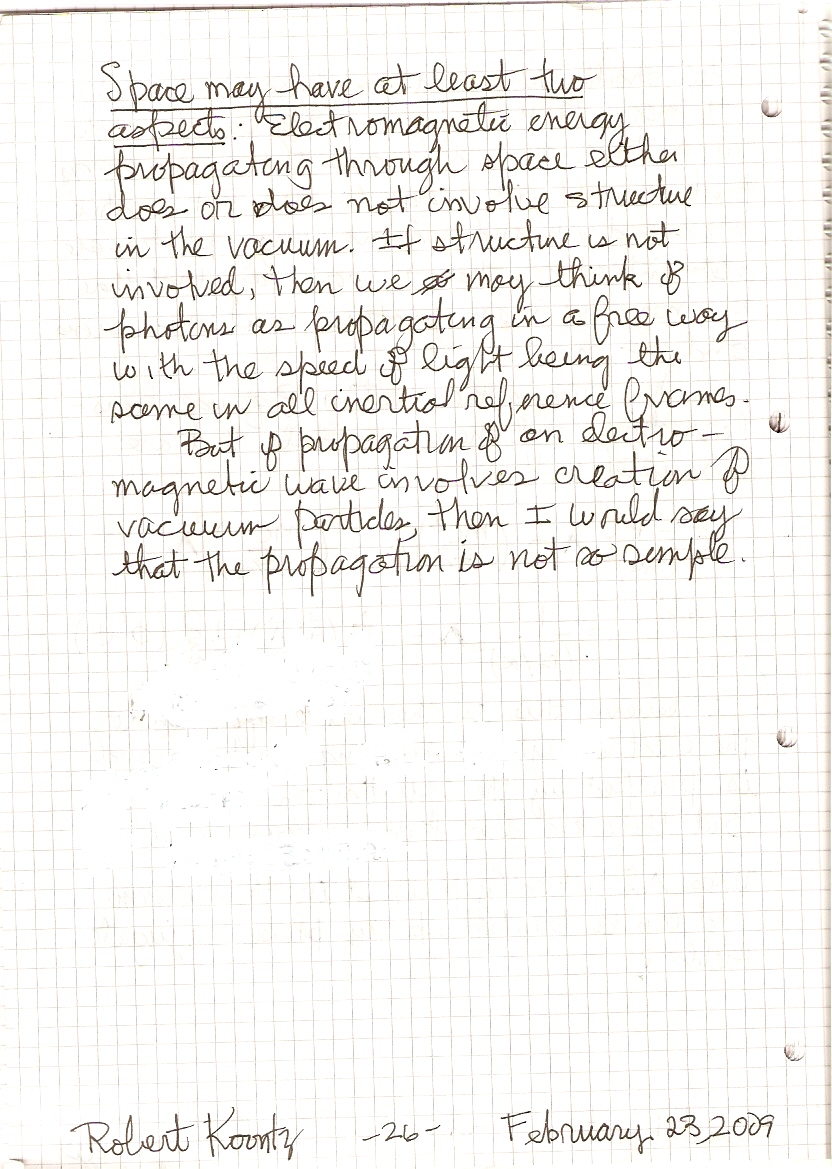 Space may have at least two
aspects: Electromagnetic energy
propagating through space either
does or does not involve structure
in the vacuum. If structure is not
involved, then we may think of
photons as propagating in a free way
with the speed of light being the
same in all inertial reference frames.
But if propagation of an electro-
magnetic wave involves creation of
vacuum particles, then I would say
that the propagation is not so simple.
Robert Koontz -26- February 23, 2009